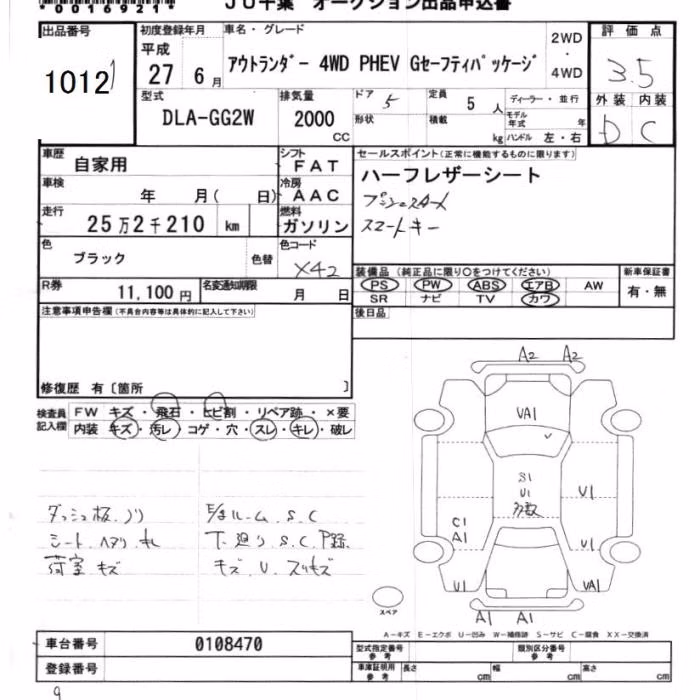 *0016921*
JU千葉 オークション出品申込書
出品番号
1012
初度登録年月
平成
27 6 月
車名・グレード
アウトランダー 4WD PHEV Gセーフティパッケージ
2WD
・
4WD
評価点
3.5
型式
DLA-GG2W
排気量
2000
CC
ドア 5
形状
定員 5 人
積載 kg
ディーラー・並行
モデル年式 年
ハンドル 左・右
外装 内装
D C
車歴
自家用
シフト
FAT
車検
年 月( 日)
冷房
AAC
走行
25万2千210 km
燃料
ガソリン
色
ブラック
色替
色コード
X42
R券
11,100円
名変通知期限
月 日
セールスポイント(正常に機能するものに限ります)
ハーフレザーシート
プッシュスタート
スマートキー
装備品 (純正品に限り○をつけてください)
PS PW ABS エアB AW
SR ナビ TV カワ
新車保証書
有・無
後日品
注意事項申告欄(不具合内容等は具体的に記入して下さい)
修復歴 有〔箇所 〕
検査員記入欄
FW キズ・飛石・ヒビ割・リペア跡・×要
内装 キズ・汚レ・コゲ・穴・スレ・キレ・破レ
ダッシュ板、ノリ
シート、ヘタリ、キレ
荷室 キズ
E/gルーム、S、C
下廻り、S、C、P録、
キズ、U、スリキズ
A2 A2
VA1
S1
U1
多数
U1
C1
A1
U1
U1 VA1
A1 A1
スペア
A-キズ E-エクボ U-凹み W-補修跡 S-サビ C-腐食 XX-交換済
車台番号
0108470
登録番号
型式指定番号
参考
類別区分番号
参考
車庫証明用
参考
長さ cm
幅 cm
高さ cm
9